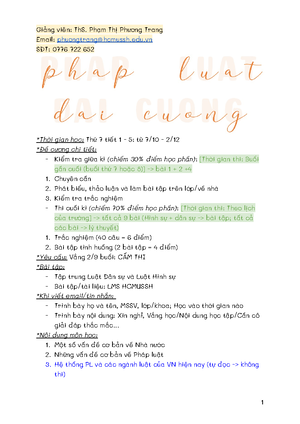 Giảng viên: ThS. Phạm Thị Phương Trang
Email: phuongtrang@hcmussh.edu.vn
SĐT: 0776 722 652
phap luat
dai cuong
*Thời gian học: Thứ 7 tiết 1 - 5: từ 7/10 - 2/12
*Đề cương chi tiết:
- Kiểm tra giữa kì (chiếm 30% điểm học phần): [Thời gian thi: Buổi
gần cuối (buổi thứ 7 hoặc 8)] -> bài 1 + 2 +4
1. Chuyên cần
2. Phát biểu, thảo luận và làm bài tập trên lớp/về nhà
3. Kiểm tra trắc nghiệm
- Thi cuối kì (chiếm 70% điểm học phần): [Thời gian thi: Theo lịch
của trường] -> tất cả 9 bài (Hình sự + dân sự -> bài tập; tất cả
các bài -> lý thuyết)
1. Trắc nghiệm (40 câu = 6 điểm)
2. Bài tập tình huống (2 bài tập = 4 điểm)
*Yêu cầu: Vắng 2/9 buổi: CẤM THI
*Bài tập:
- Tập trung Luật Dân sự và Luật Hình sự
- Bài tập/tài liệu: LMS HCMUSSH
*Khi viết email/tin nhắn:
- Trình bày họ và tên, MSSV, lớp/khoa; Học vào thời gian nào
- Trình bày nội dung: Xin nghỉ, Vắng học/Nội dung học tập/Cần cô
giải đáp thắc mắc...
*Nội dung môn học:
1. Một số vấn đề cơ bản về Nhà nước
2. Những vấn đề cơ bản về Pháp luật
3. Hệ thống PL và các ngành luật của VN hiện nay (tự đọc -> không
thi)
1